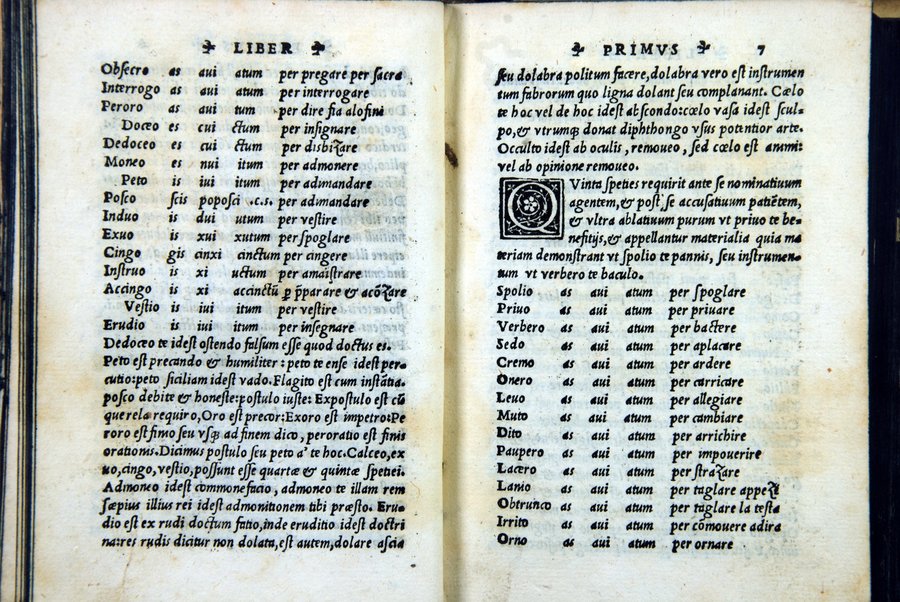 LIBER
Obsecro as aui atum per pregare per sacra
Interrogo as aui atum per interrogare
Peroro as aui tum per dire fia alofini
Doceo es cui ctum per insignare
Dedoceo es cui ctum per disbizare
Moneo es nui itum per admonere
Peto is iui itum per adimandare
Posco scis poposci .c.s. per adimandare
Induo is dui utum per vestire
Exuo is xui xutum per spoglare
Cingo gis cinxi cinctum per cingere
Instruo is xi uctum per amaistrare
Accingo is xi accinctū ꝑ p̄parare & acōzare
Vestio is iui itum per vestire
Erudio is iui itum per insegnare
Dedoceo te idest ostendo falsum esse quod doctus es.
Peto est precando & humiliter : peto te ense idest per
cutio:peto siciliam idest vado. Flagito est cum instātia.
posco debite & honeste:postulo iuste: Expostulo est cū
querela requiro, Oro est precor: Exoro est impetro: Pe
roro est fimo seu vsq; ad finem dico, peroratio est finis
orationis. Dicimus postulo seu peto a' te hoc. Calceo, ex
uo, cingo, vestio, possunt esse quartæ & quintæ spetiei.
Admoneo idest commonefacio, admoneo te illam rem
sæpius illius rei idest admonitionem tibi præsto. Eru-
dio est ex rudi doctum fatio, inde eruditio idest doctri
na: res rudis dicitur non dolata, est autem, dolare ascia
PRIMVS 7
seu dolabra politum facere, dolabra vero est instrumen
tum fabrorum quo ligna dolant seu complanant. Cælo
te hoc vel de hoc idest abscondo: cœlo vasa idest sculpo,
po, & vtrumq; donat diphthongo vsus potentior arte.
Occulto idest ab oculis, remoueo, sed cœlo est animi:
vel ab opinione remoueo.
QVinta speties requirit ante se nominatiuum
agentem, & post se accusatiuum patiētem,
& vltra ablatiuum purum vt priuo te be-
nefitijs, & appellantur materialia quia ma
teriam demonstrant vt spolio te pannis, seu instrumen-
tum vt verbero te baculo.
Spolio as aui atum per spoglare
Priuo as aui atum per priuare
Verbero as aui atum per bactere
Sedo as aui atum per aplacare
Cremo as aui atum per ardere
Onero as aui atum per carricare
Leuo as aui atum per allegiare
Muto as aui atum per cambiare
Dito as aui atum per arrichire
Paupero as aui atum per impouerire
Lacero as aui atum per strazare
Lanio as aui atum per taglare appezi
Obtrunco as aui atum per taglare la testa
Irrito as aui atum per cōmouere adira
Orno as aui atum per ornare